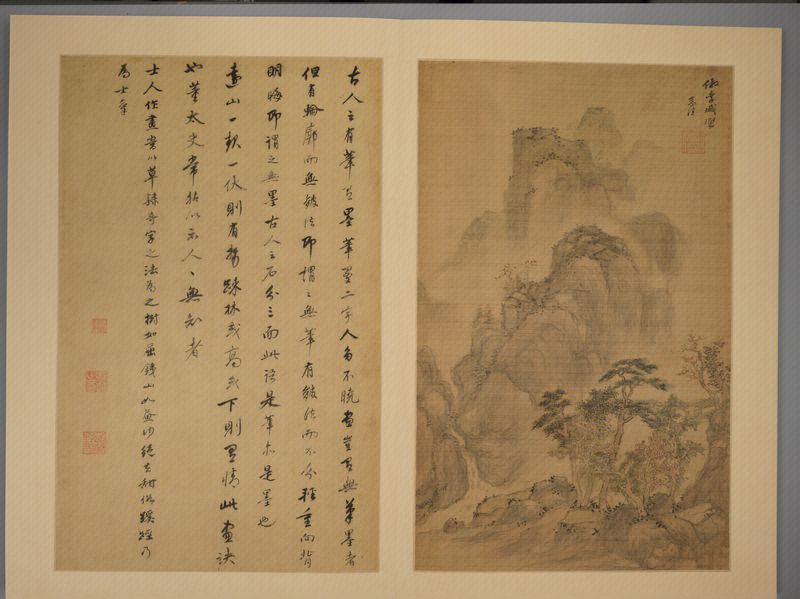 古人云有筆有墨筆墨二字人多不曉畫豈有無筆墨者
但有輪廓而無皴法即謂之無筆有皴法而不分輕重向背
明晦即謂之無墨古人云石分三面此語是筆亦是墨也
遠山一起一伏則有勢疎林或高或下則有情此畫訣
也董太史常拈以示人人無知者
士人作畫當以草隸奇字之法為之樹如屈鐵山如畫沙絕去甜俗蹊徑乃
為士氣
倣李咸熙